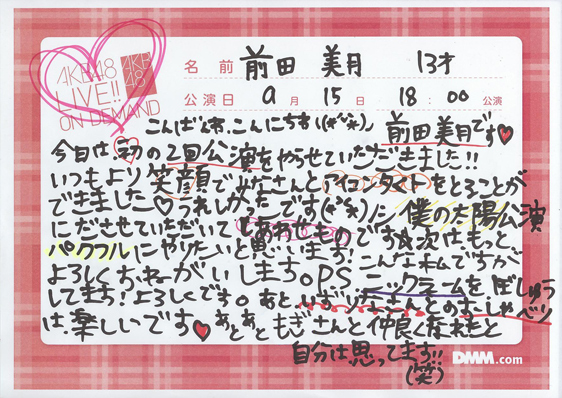 AKB48
LIVE!!
ON DEMAND
AKB
48
名前 前田 美月 13才
公演日 9月 15日 18:00 公演
こんばんわ、こんにちわ((*^^*)ノ 前田美月です♥
今日は、初の2回公演をやらせていただきました!!
いつもより笑顔でみなさんとアイコンタクトをとることが
できました♡うれしかったです(*^^*)ノシ 僕の太陽公演
にださせていただいてしあわせものです 次はもっと
パワフルにやりたいと思います! こんな私ですが
よろしくおねがいします。PS ニックネームをぼしゅう
してます!よろしくです。あと、いずりなさんとのおしゃべり
は、楽しいです♥ あとあともぎさんと仲良くなれたと
自分は思ってます!!
(笑)
DMM.com